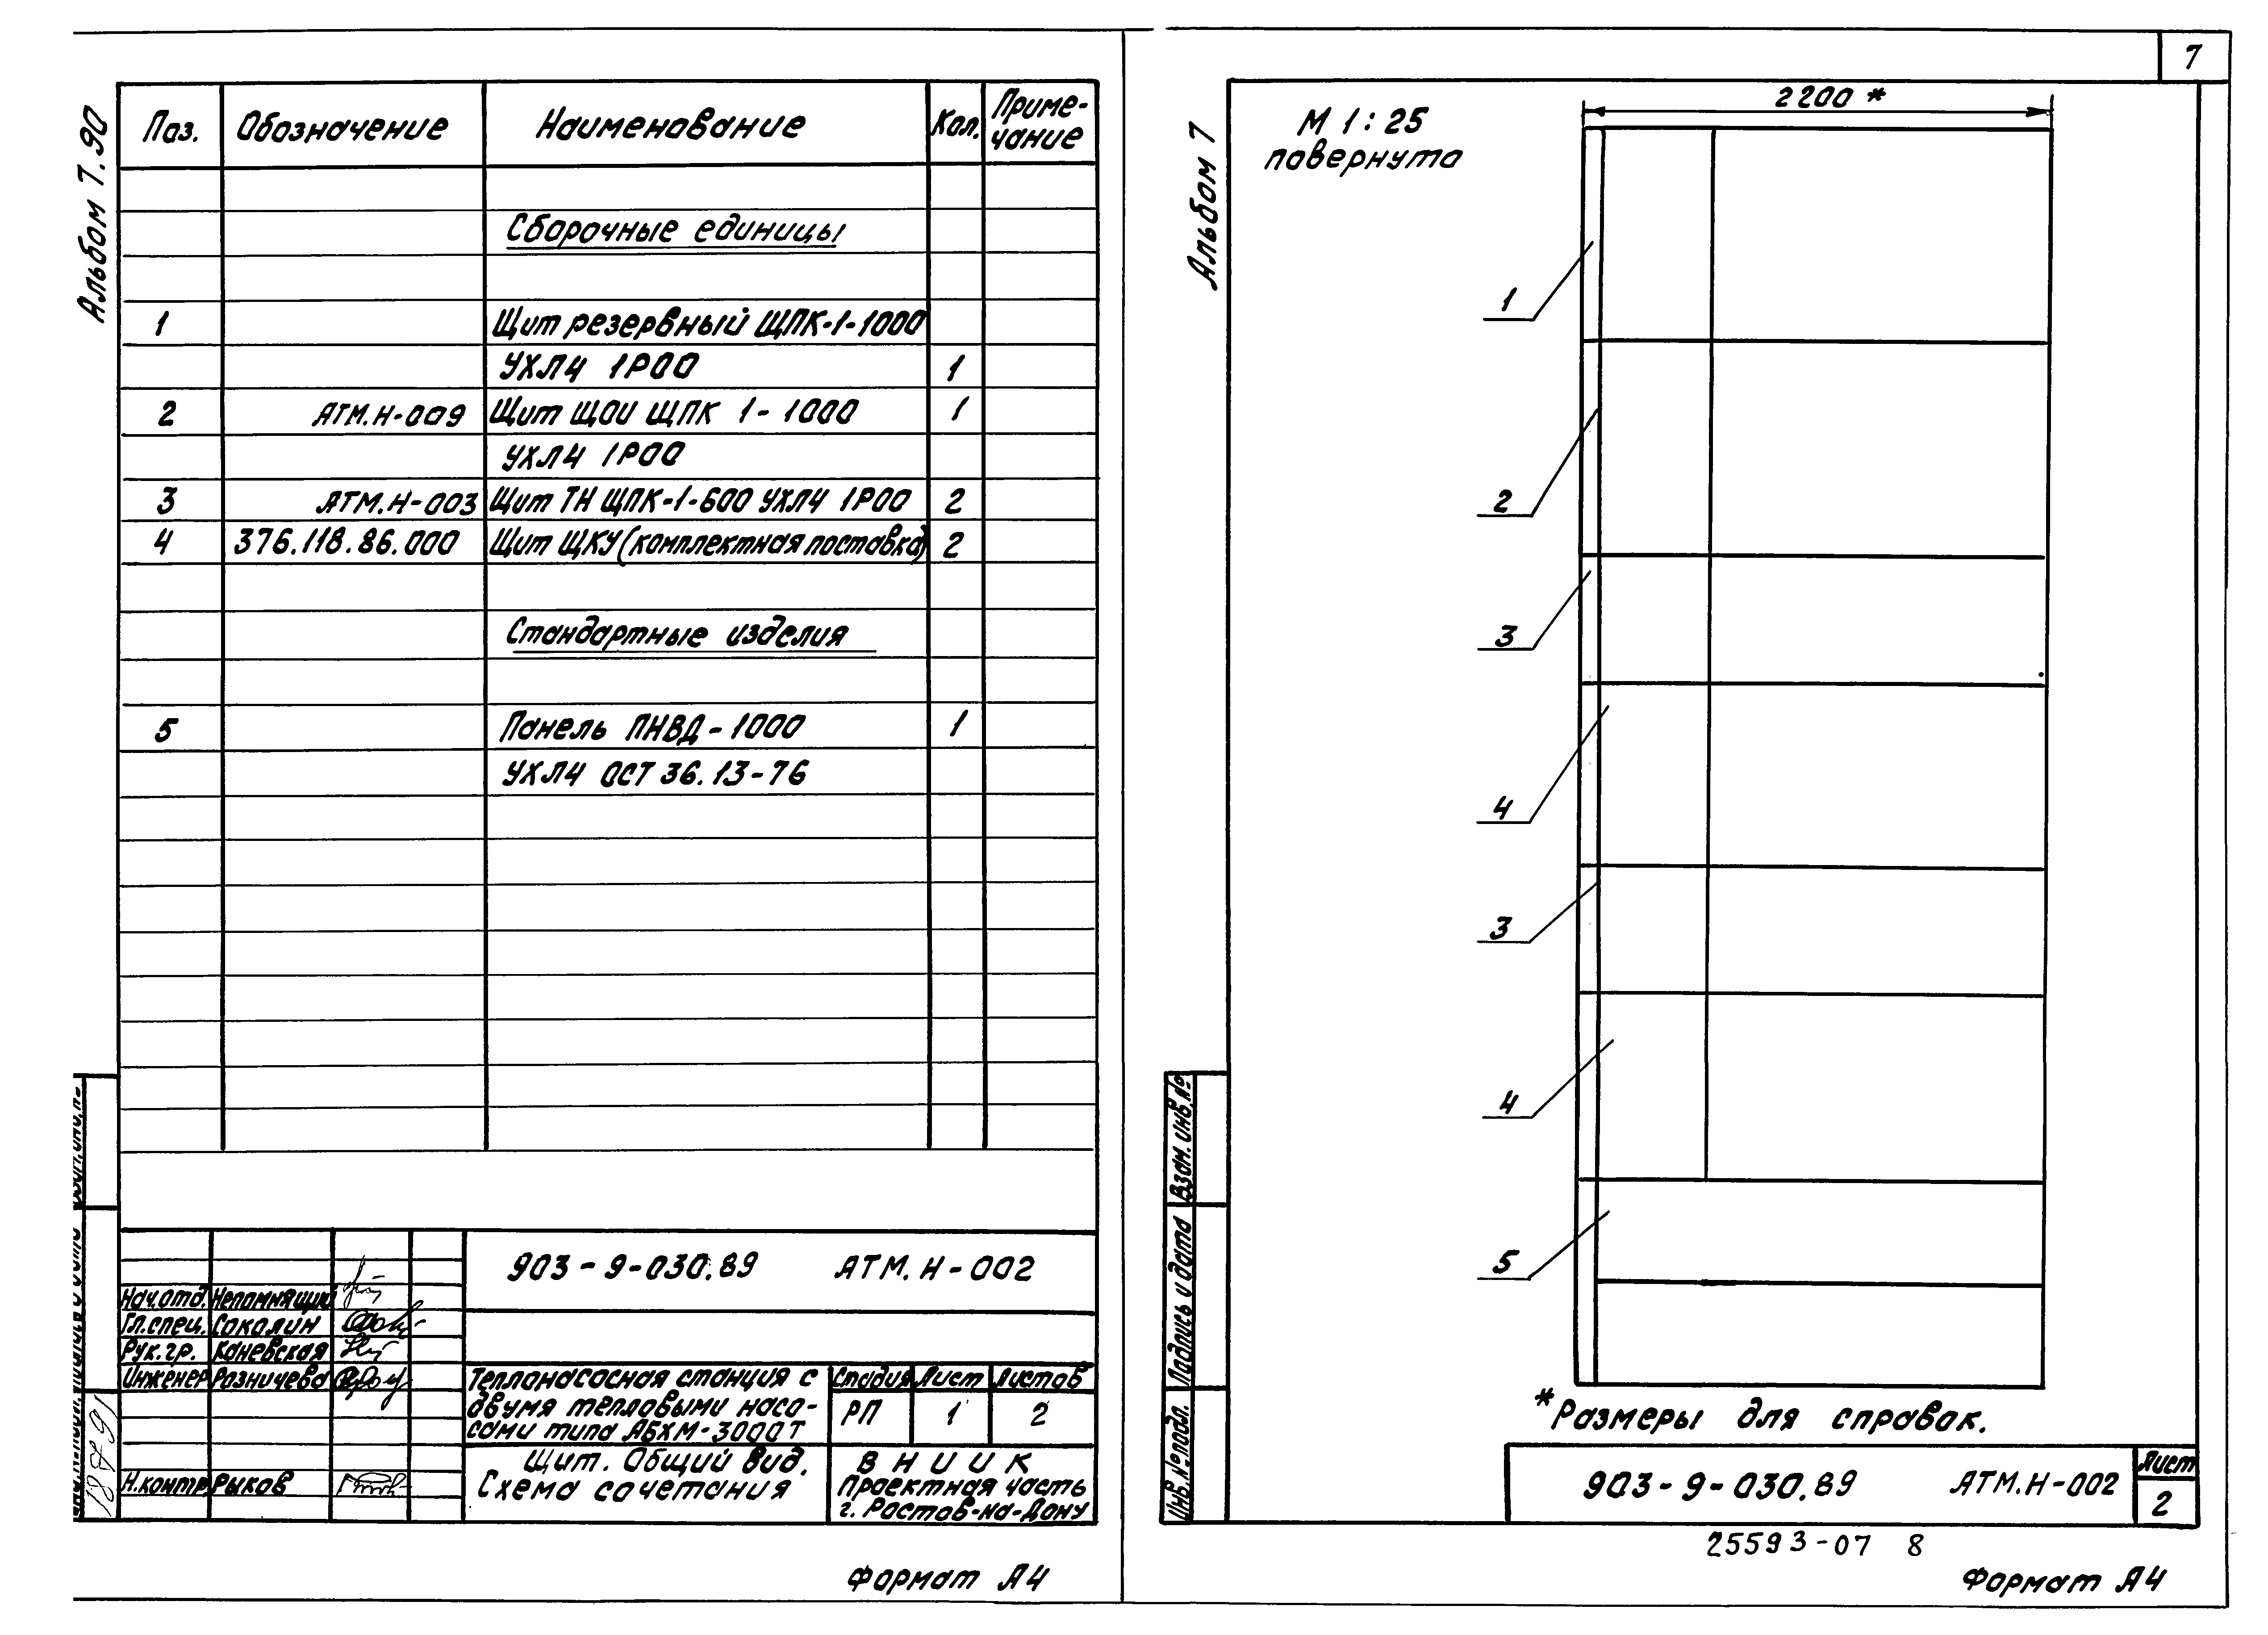 Альбом 7.90
Паз. Обозначение Наименование Кол. Приме-
чание
Сборочные единицы
1 Щит резервный ЩПК-1-1000
УХЛ4 1Р00 1
2 АТМ.Н-009 Щит ЩОИ ЩПК 1-1000 1
УХЛ4 1Р00
3 АТМ.Н-003 Щит ТН ЩПК-1-600 УХЛ4 1Р00 2
4 376.118.86.000 Щит ЩКУ (комплектная поставка) 2
Стандартные изделия
5 Панель ПНВД-1000 1
УХЛ4 ОСТ 36.13-76
903-9-030.89 АТМ.Н-002
Нач.отд. Непомнящий
Гл.спец. Соколин
Рук.гр. Каневская
Инженер Разничева
Н.контр. Рыков
Теплонасосная станция с
двумя тепловыми насо-
сами типа АБХМ-3000Т
Стадия Лист Листов
РП 1 2
Щит. Общий вид.
Схема сочетания
ВНИИК
Проектная часть
г. Ростов-на-Дону
Формат А4
7
Альбом 7
М 1:25
повернуто
2200 *
1
2
3
4
3
4
5
*Размеры для справок.
Взам. инв.№
Подпись и дата
Инв.№подл.
903-9-030.89 АТМ.Н-002
Лист
2
25593-07 8
Формат А4